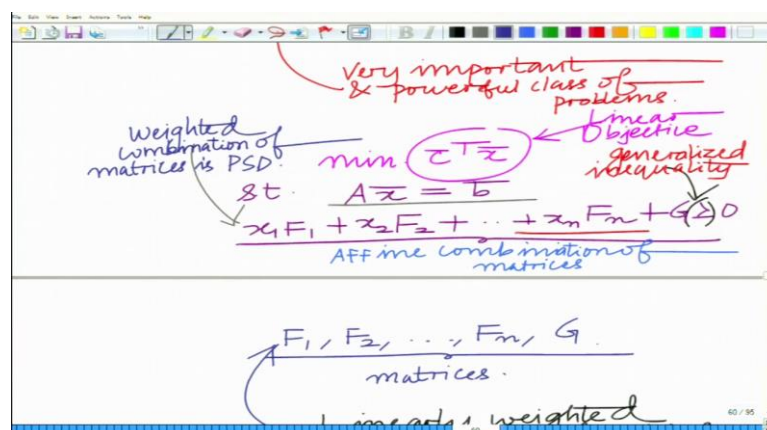 File Edit View Insert Actions Tools Help
Very important
& powerful class of
problems.
Linear
Objective
Weighted
combination of
matrices is PSD.
min c̄ᵀx̄
generalized
inequality
st. Ax̄ = b̄
x₁F₁ + x₂F₂ + ... + xₙFₙ + G ≥ 0
Affine combination of
matrices
F₁, F₂, ..., Fₙ, G
matrices.
Linearly weighted
60 / 95